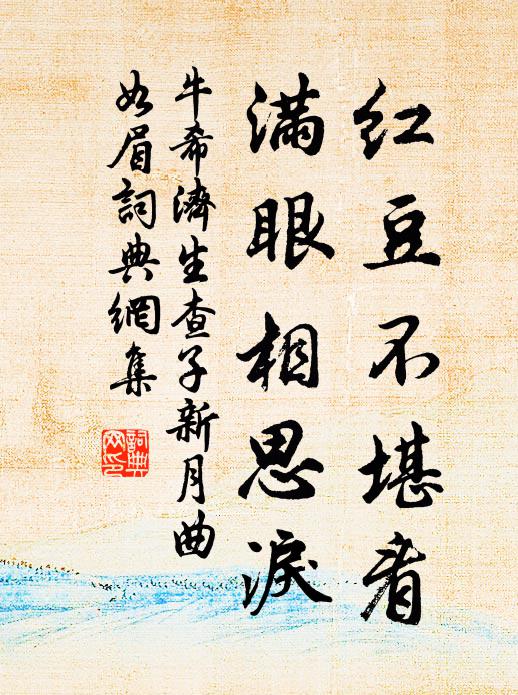 红豆不堪看
满眼相思淚
牛希濟生查子新月曲
如眉詞典網集